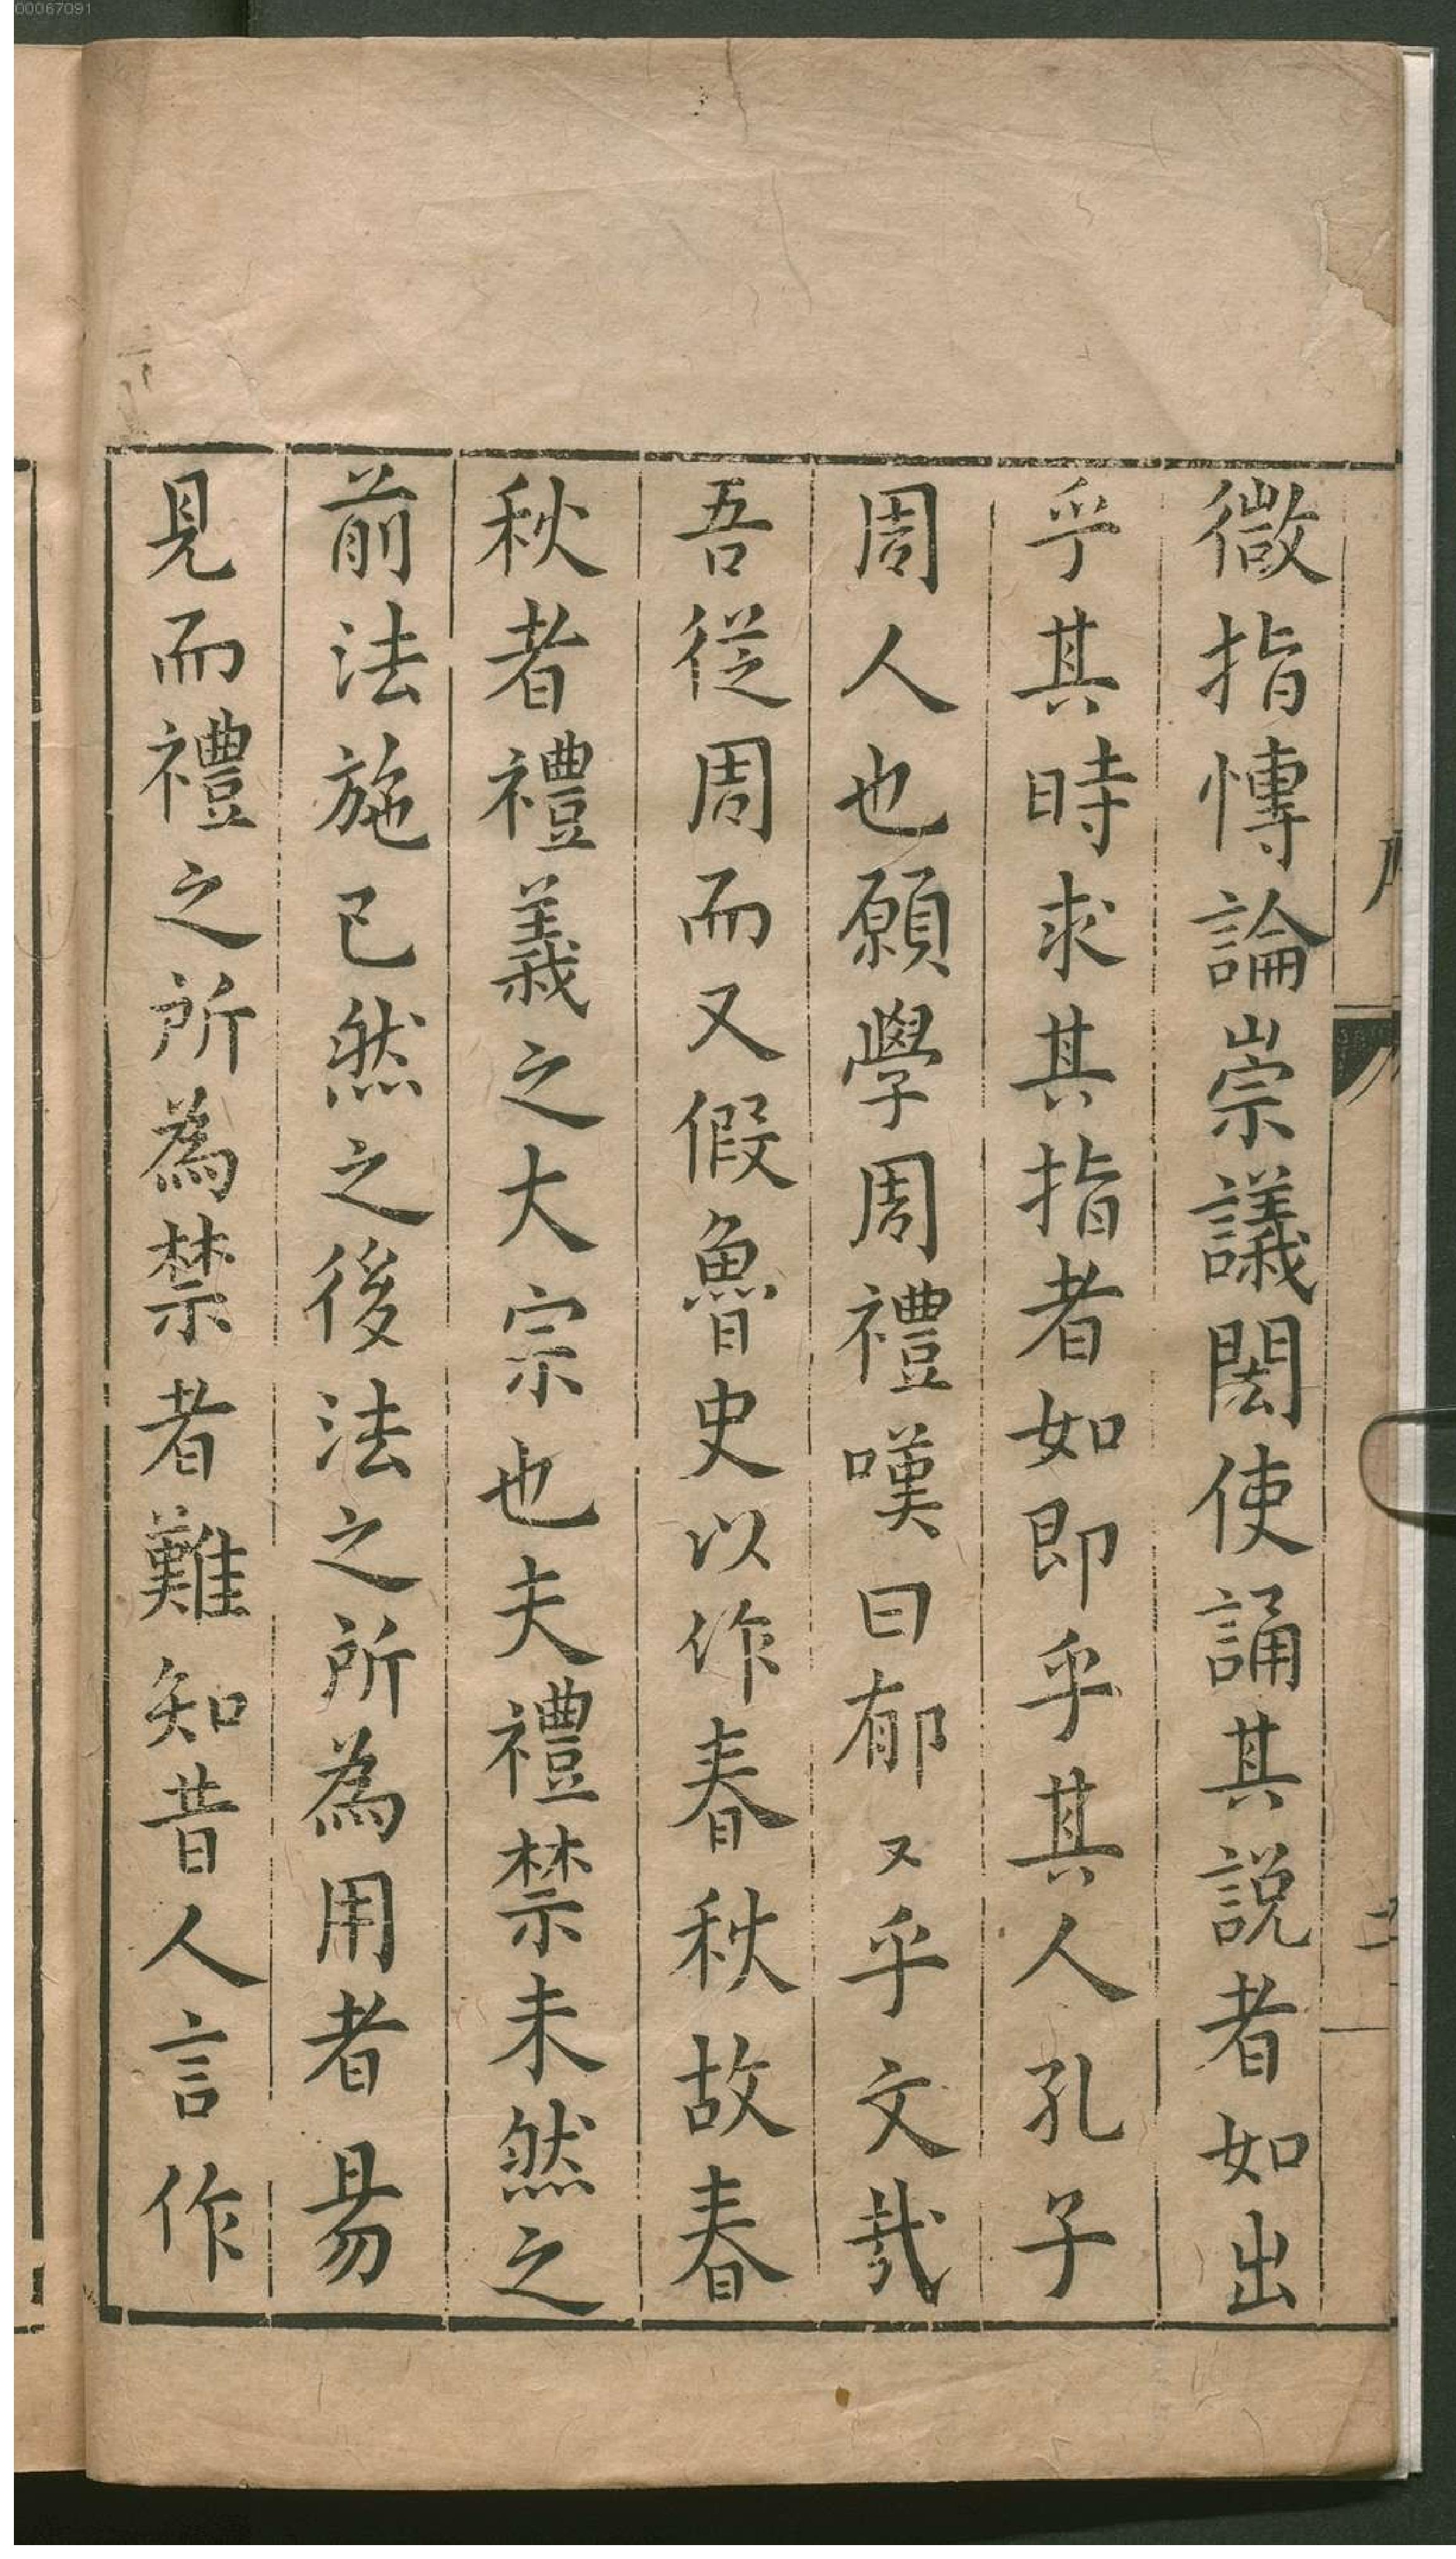 00067091
微指慱論崇議閎使誦其説者如出
乎其時求其指者如即乎其人孔子
周人也願學周禮嘆曰郁又乎文㢤
吾從周而又假魯史以作春秋故春
秋者禮義之大宗也夫禮禁未然之
前法施已然之後法之所為用者易
見而禮之所為禁者難知昔人言作